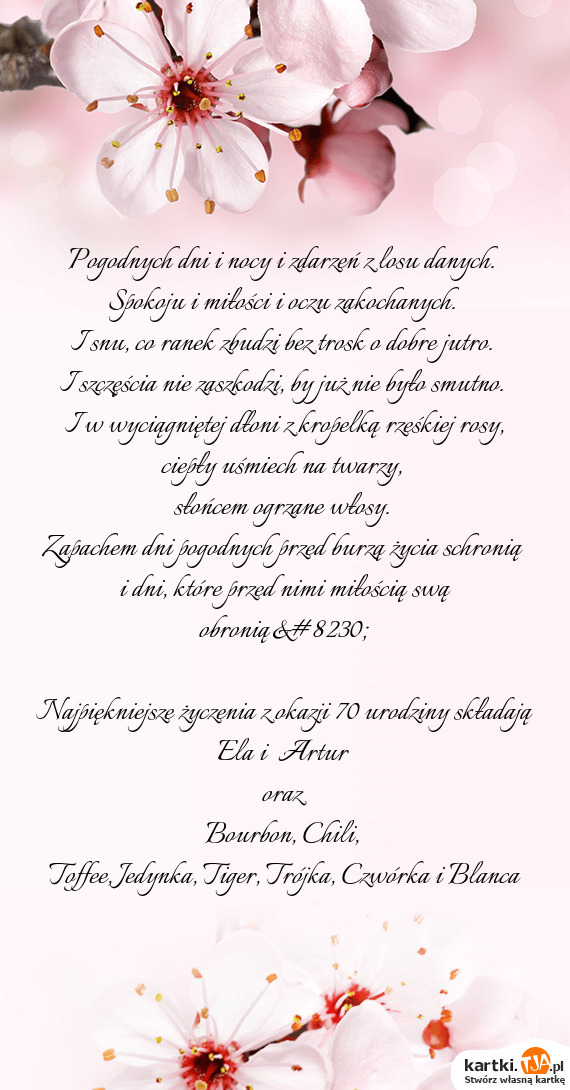 Pogodnych dni i nocy i zdarzeń z losu danych.
Spokoju i miłości i oczu zakochanych.
I snu, co ranek zbudzi bez trosk o dobre jutro.
I szczęścia nie zaszkodzi, by już nie było smutno.
I w wyciągniętej dłoni z kropelką rzęśkiej rosy,
ciepły uśmiech na twarzy,
słońcem ogrzane włosy.
Zapachem dni pogodnych przed burzą życia schronią
i dni, które przed nimi miłością swą
obronią&#8230;
Najpiękniejsze życzenia z okazji 70 urodziny składają
Ela i Artur
oraz
Bourbon, Chili,
Toffee,Jedynka, Tiger, Trójka, Czwórka i Blanca
kartki.TJA.pl
Stwórz własną kartkę